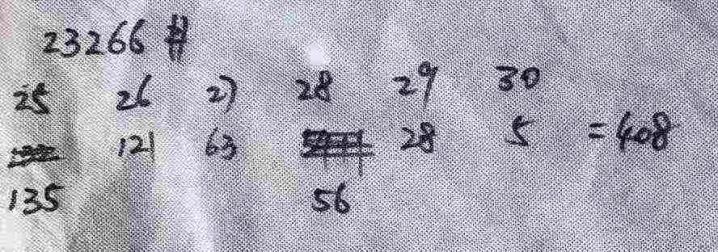 23266#
25 26 27 28 29 30
121 63 28 5 =408
135 56